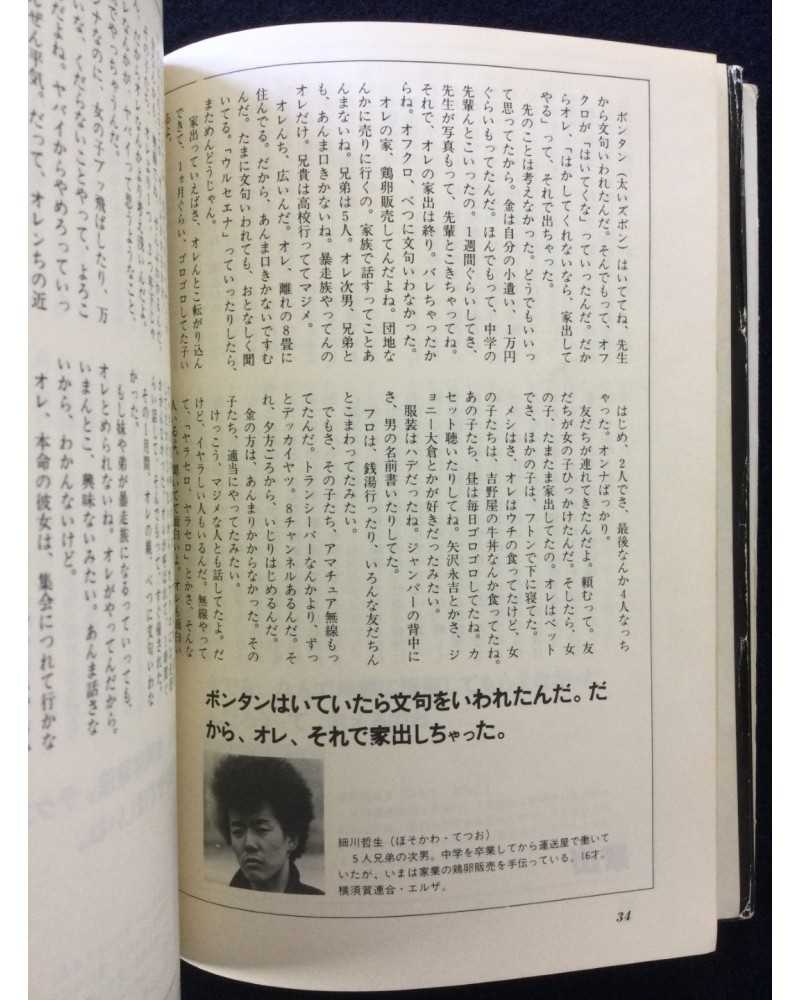 ボンタン（太いズボン）はいててね、先生
から文句いわれたんだ。そんでもって、オフ
クロが「はいてくな」っていったんだ。だか
らオレ、「はかしてくれないなら、家出して
やる」って、それで出ちゃった。
先のことは考えなかった。どうでもいいっ
て思ってたから。金は自分の小遣い、１万円
ぐらいもってたんだ。ほんでもって、中学の
先輩んとこいったの。１週間ぐらいしてさ、
先生が写真もって、先輩とこきちゃってね。
それで、オレの家出は終り。バレちゃったか
らね。オフクロ、べつに文句いわなかった。
オレの家、鶏卵販売してんだよね。団地な
んかに売りに行くの。家族で話すってことあ
んまないね。兄弟は５人。オレ次男、兄弟と
も、あんま口きかないね。暴走族やってんの
オレだけ。兄貴は高校行っててマジメ。
オレんち、広いんだ。オレ、離れの８畳に
住んでる。だから、あんま口きかないですむ
んだ。たまに文句いわれても、おとなしく聞
いてる。「ウルセエナ」っていったりしたら、
まためんどうじゃん。
家出っていえばさ、オレんとこ転がり込ん
できて、１ヶ月ぐらい、ゴロゴロしてた子い
るよ。
はじめ、２人でさ、最後なんか４人なっち
ゃった。オンナばっかり。
友だちが連れてきたんだよ。頼むって。友
だちが女の子ひっかけたんだ。そしたら、女
の子、たまたま家出してたの。オレはベット
でさ、ほかの子は、フトンで下に寝てた。
メシはさ、オレはウチの食ってたけど、女
の子たちは、吉野屋の牛丼なんか食ってたね。
あの子たち、昼は毎日ゴロゴロしてたね。カ
セット聴いたりしてね。矢沢永吉とかさ、ジ
ョニー大倉とかが好きだったみたい。
服装はハデだったね。ジャンパーの背中に
さ、男の名前書いたりしてた。
フロは、銭湯行ったり、いろんな友だちん
とこまわってたみたい。
でもさ、その子たち、アマチュア無線もっ
てたんだ。トランシーバーなんかより、ずっ
とデッカイヤツ。８チャンネルあるんだ。そ
れ、夕方ごろから、いじりはじめるんだ。
金の方は、あんまりかからなかった。その
子たち、適当にやってたみたい。
けっこう、マジメな人とも話してたよ。だ
けど、イヤラしい人もいるんだ。無線やって
て、「ヤラセロ、ヤラセロ」とかさ、そんな
ボンタンはいていたら文句をいわれたんだ。だ
から、オレ、それで家出しちゃった。
細川哲生（ほそかわ・てつお）
５人兄弟の次男。中学を卒業してから運送屋で働いて
いたが、いまは家業の鶏卵販売を手伝っている。16才。
横須賀連合・エルザ。
34
メなのに、女の子ブッ飛ばしたり、万
いな、くだらないことやって、よろこ
だよね。ヤバイからやめろっていっ
ぜん平気。だって、オレンちの近
かった。
もし妹や弟が暴走族になるっていっても、
オレとめられないね。オレがやってんだから。
いまんとこ、興味ないみたい。あんま話さな
いから、わかんないけど。
オレ、本命の彼女は、集会につれて行かな